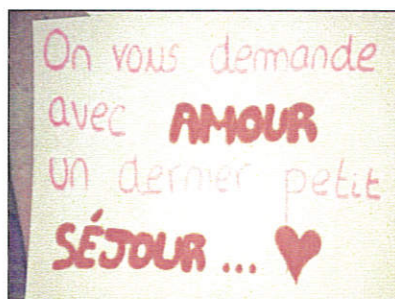 On vous demande
avec AMOUR
un dernier petit
SÉJOUR... ♥